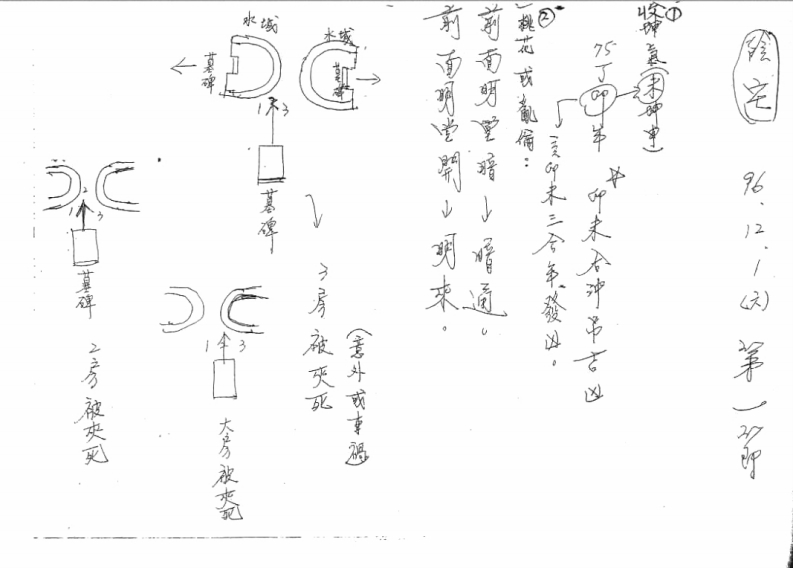 陰宅
96.12.1(六) 第一節
①
收坤氣(未坤申)
75丁卯年
※卯未合沖帶吉凶
亥卯未三合年發凶。
②
桃花或亂倫:
前面明堂暗↓暗通。
前面明堂開↓明來。
水城
墓碑
水城
墓碑
1 3
墓碑
3房被夾死
(意外或車禍)
1 3
大房被夾死
1 2 3
墓碑
2房被夾死